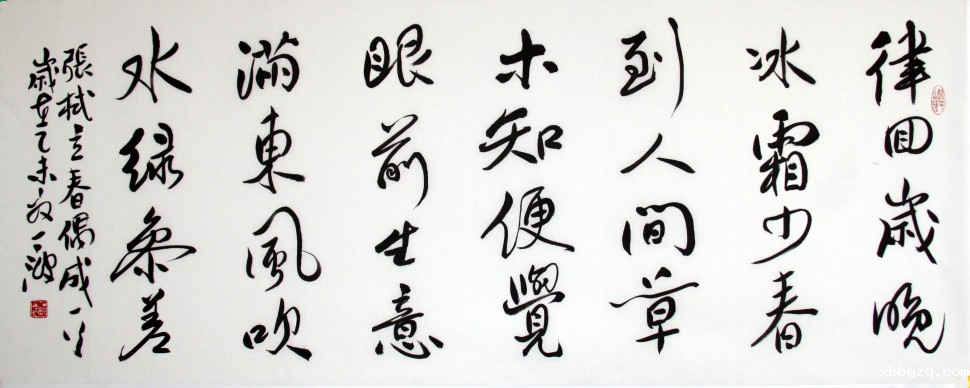 律回歲晚
冰霜少春
到人间草
木知便覺
眼前生意
滿東風吹
水绿参差
張栻立春偶成一首
歲在乙未
xbbyzq.com